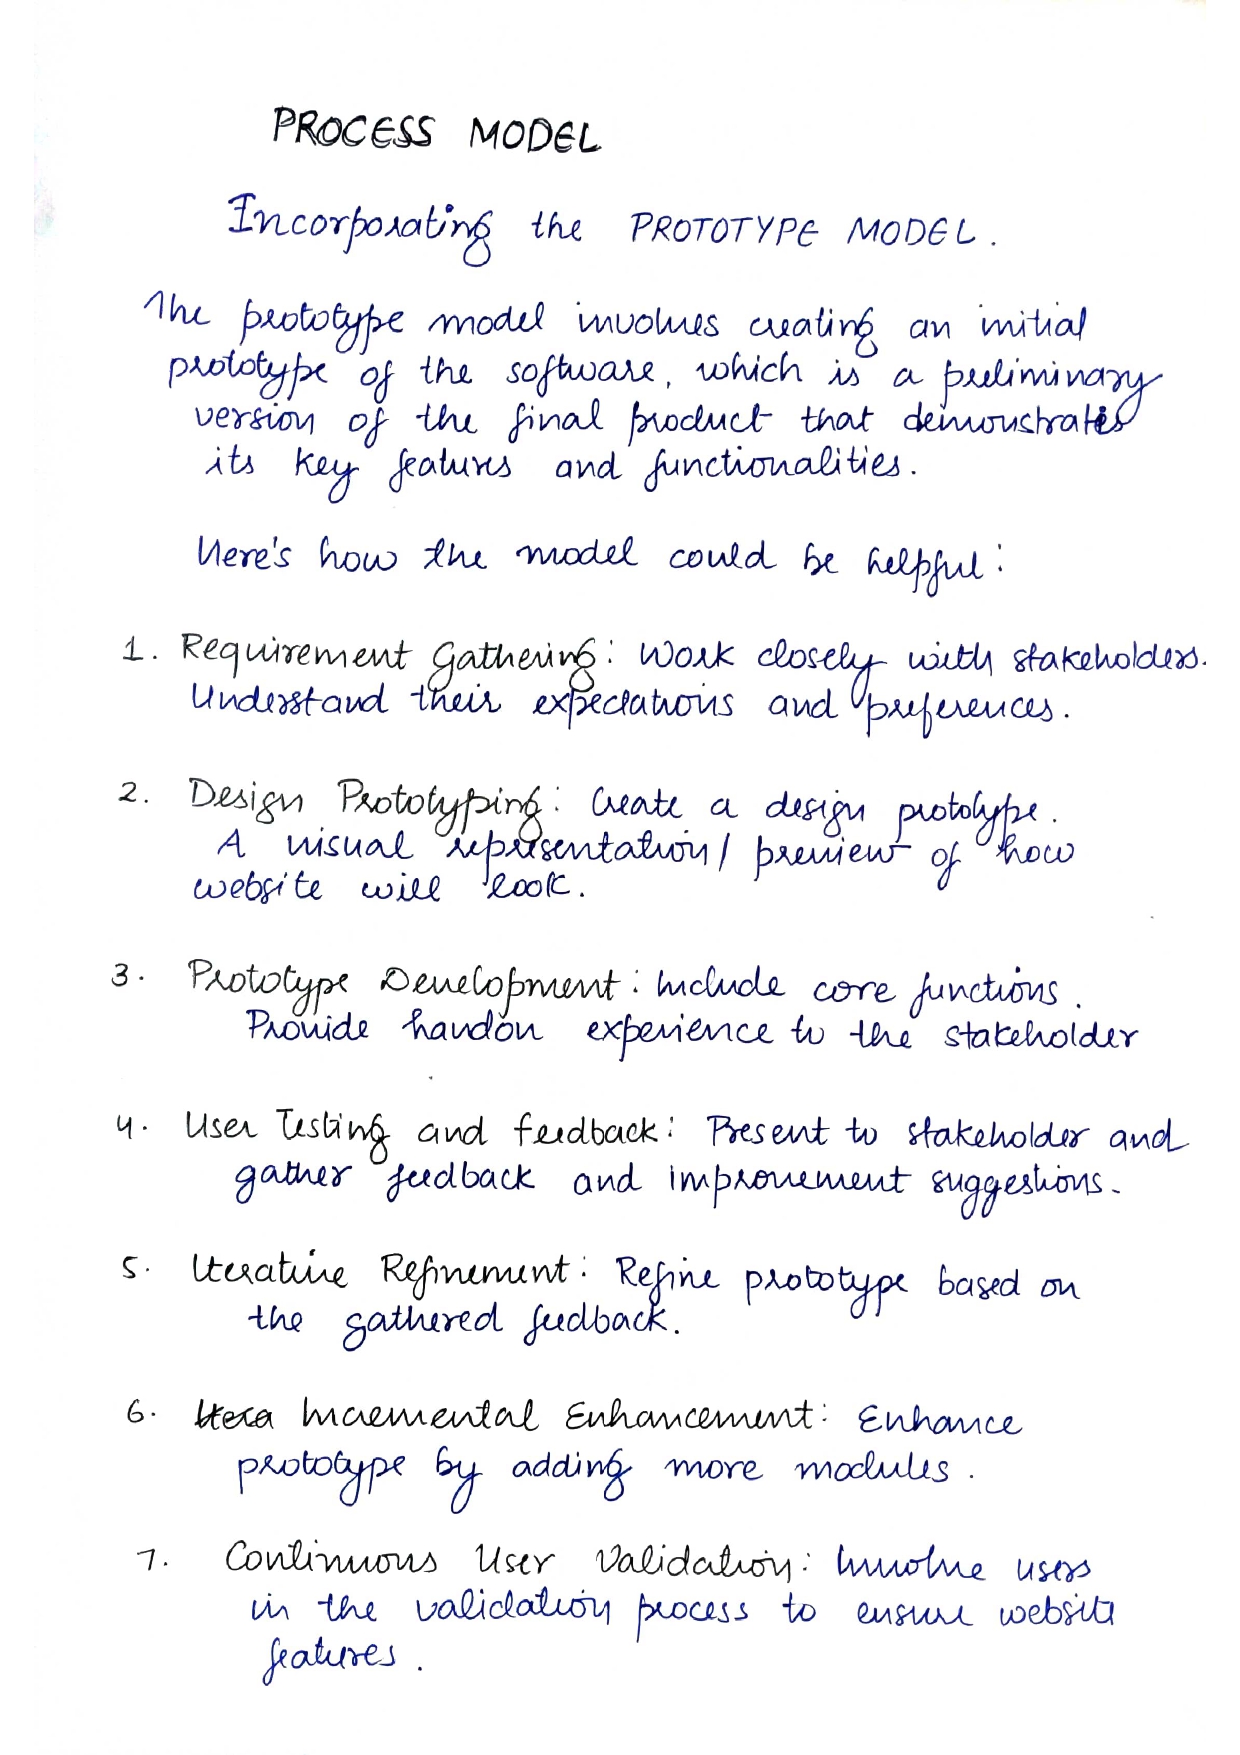 PROCESS MODEL
Incorporating the PROTOTYPE MODEL.
The prototype model involves creating an initial
prototype of the software, which is a preliminary
version of the final product that demonstrates
its key features and functionalities.
Here's how the model could be helpful:
1. Requirement Gathering: Work closely with stakeholders.
Understand their expectations and preferences.
2. Design Prototyping: Create a design prototype.
A visual representation/ preview of how
website will look.
3. Prototype Development: Include core functions.
Provide handon experience to the stakeholder
4. User Testing and feedback: Present to stakeholder and
gather feedback and improvement suggestions.
5. Iterative Refinement: Refine prototype based on
the gathered feedback.
6. Itera Incremental Enhancement: Enhance
prototype by adding more modules.
7. Continuous User Validation: Involve users
in the validation process to ensure website
features.